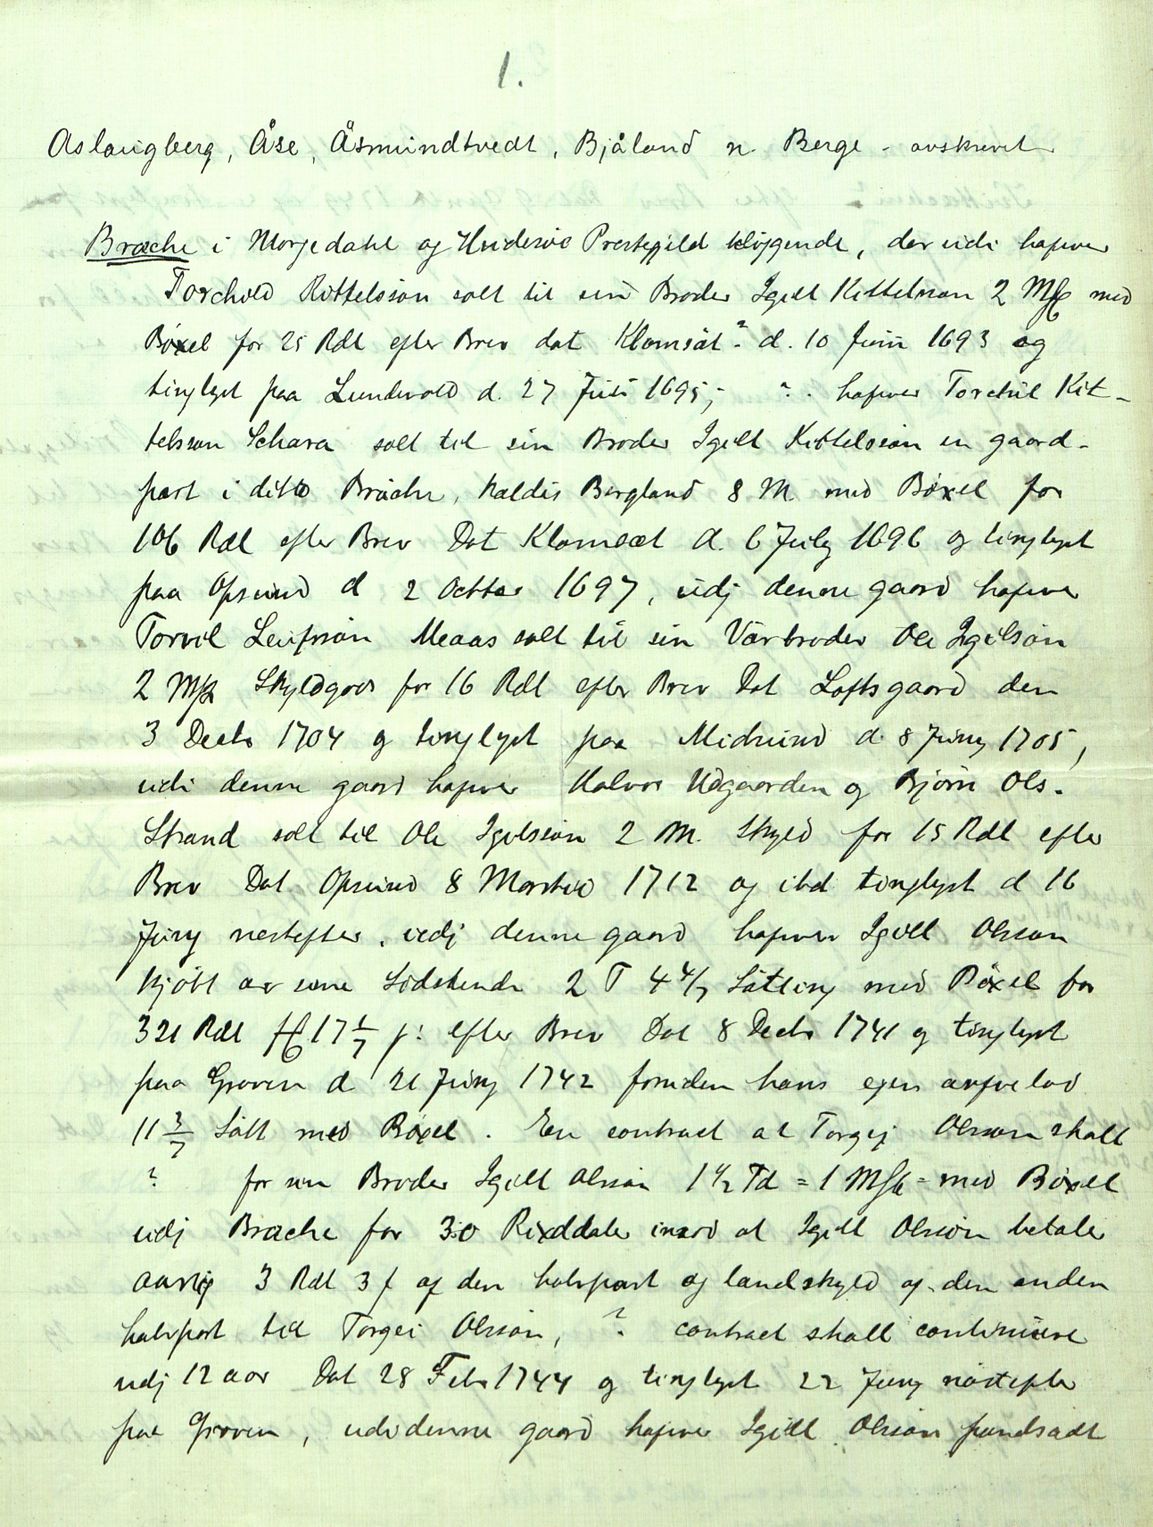 1.
Aslaugberg, Åse, Åsmundtvedt, Bjåland n. Berge - avskrevet
Brache i Morgedahl og Hvidesøe Prestegield kliggende, der udi hafwer
Torchild Kittelsøn solt til sin Broder Igell Kittelsøn 2 Mk med
Bøxel for 25 Rdl efter Brev dat Klomsæt? d. 10 Juni 1693 og
tinglyst paa Lundevold d. 27 Juli 1695; ? . hafwer Torchil Kit-
telsøn Schara solt til sin Broder Igell Kittelsøn en gaard-
part i ditto Brache, kaldis Bergland 8 M med Bøxel for
106 Rdl efter Brev Dat Klomsæt d. 6 July 1696 og tinglyst
paa Opsund d 2 Octbr 1697, udj denne gaard hafwer
Torvil Leufsøn Meaas solt til sin Værbroder Ole Igelsøn
2 Mk Skyldgods for 16 Rdl efter Brev Dat Loftsgaard den
3 Decbr 1704 og tinglyst paa Midsund d. 8 Juny 1705,
udi denne gaard hafwer Halvor Udgaarden og Bjørn Ols.
Strand solt til Ole Igelssøn 2 M. Skyld for 15 Rdl efter
Brev Dat Opsund 8 Martii 1712 og ibd tinglyst d 16
Juny nestefter, udj denne gaard hafwer Igell Olsson
kjøbt av sine Södskende 2 T 4 4/7 Sätting med Bøxel for
321 Rdl 17 1/7 s: efter Brev Dat 8 Decbr 1741 og tinglyst
paa Groven d 21 Juny 1742 foruden hans egen arfvelod
11 3/7 Sätt med Bøxel. En contract at Torgej Olsson skall
? for sin Broder Igell Olsøn 1 1/2 Td = 1 Mk = med Bøxel
udj Brache for 30 Rixddaler imod at Igell Olsøn betaler
aarlig 3 Rdl 3 f af den halvpart og landskyld af den anden
halvport til Torgei Olsøn, ? contract skall continuere
udj 12 aar Dat 28 Febr 1744 og tinglyst 22 Juny næstefter
paa Groven, udi denne gaard hafwer Igell Olsøn pandsadt